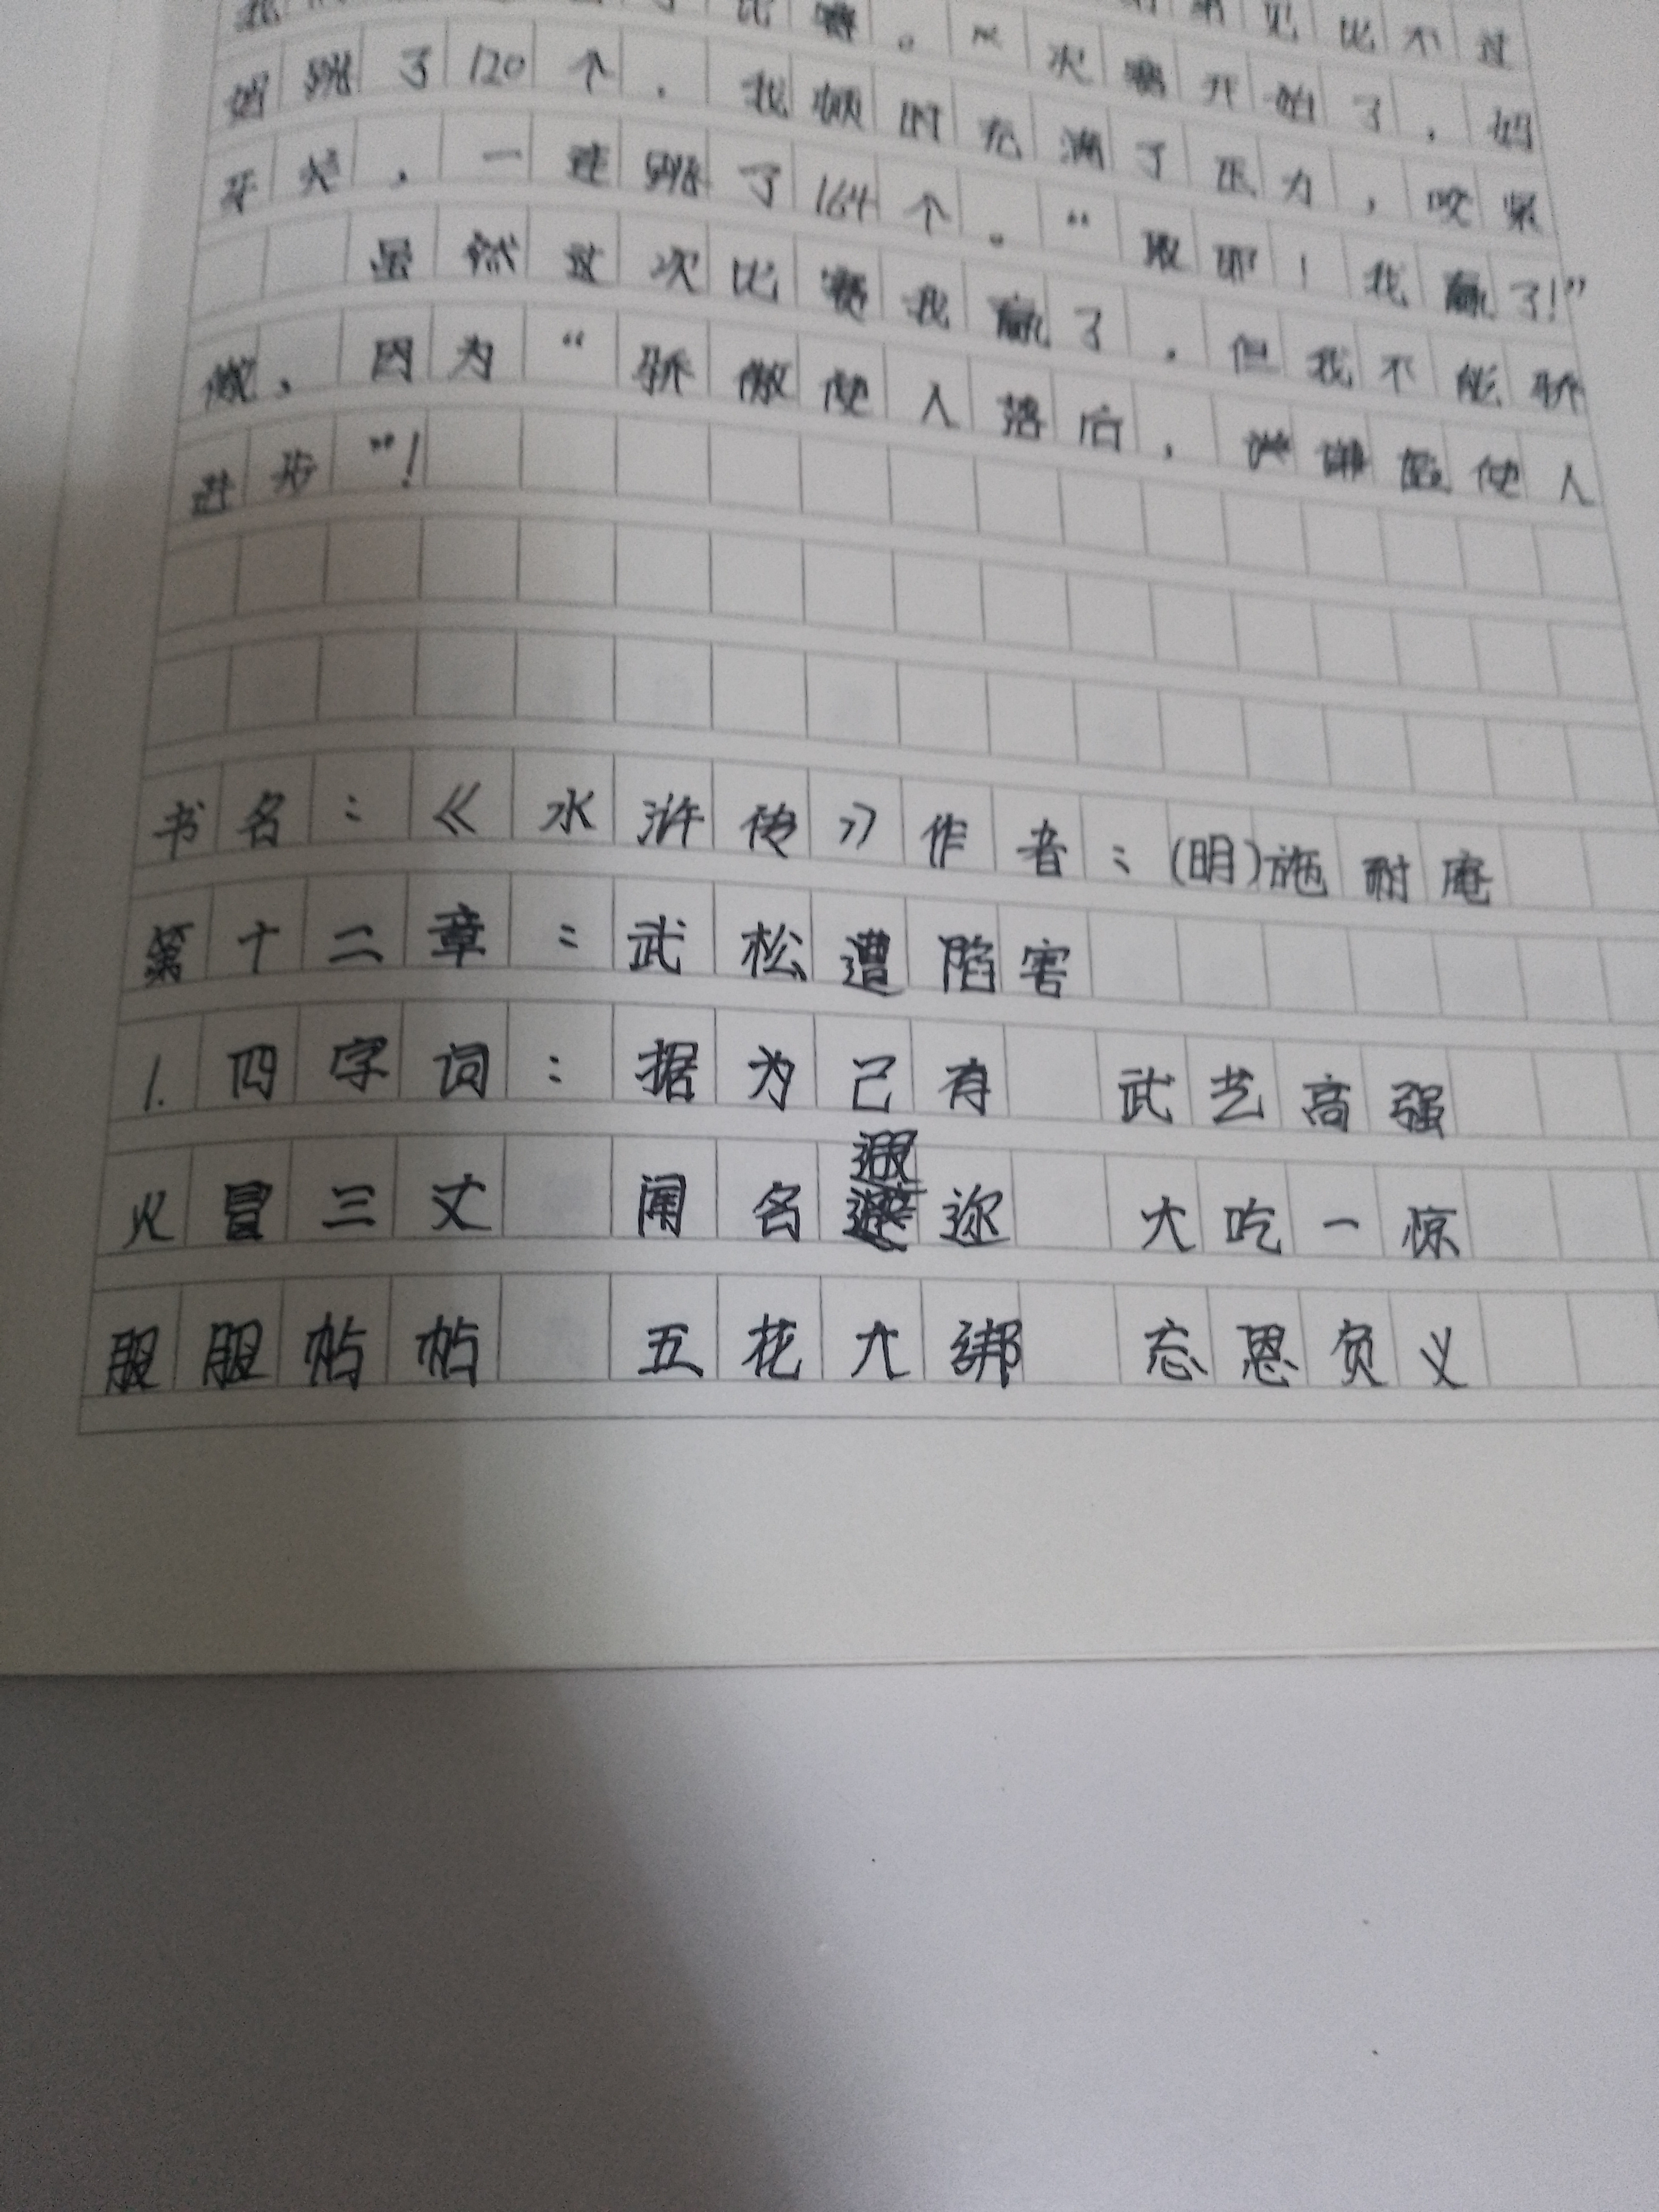 比赛。 次赛开始了，妈
妈跳了120个，我顿时充满了压力，咬紧
牙关，一连跳了164个。“耶！我赢了!”
虽然这次比赛我赢了，但我不能骄
傲，因为“骄傲使人落后，谦虚使人
进步”!
书名：《水浒传》作者：(明)施耐庵
第十二章：武松遭陷害
1.四字词：据为己有 武艺高强
火冒三丈 闻名遐迩 大吃一惊
服服帖帖 五花大绑 忘恩负义